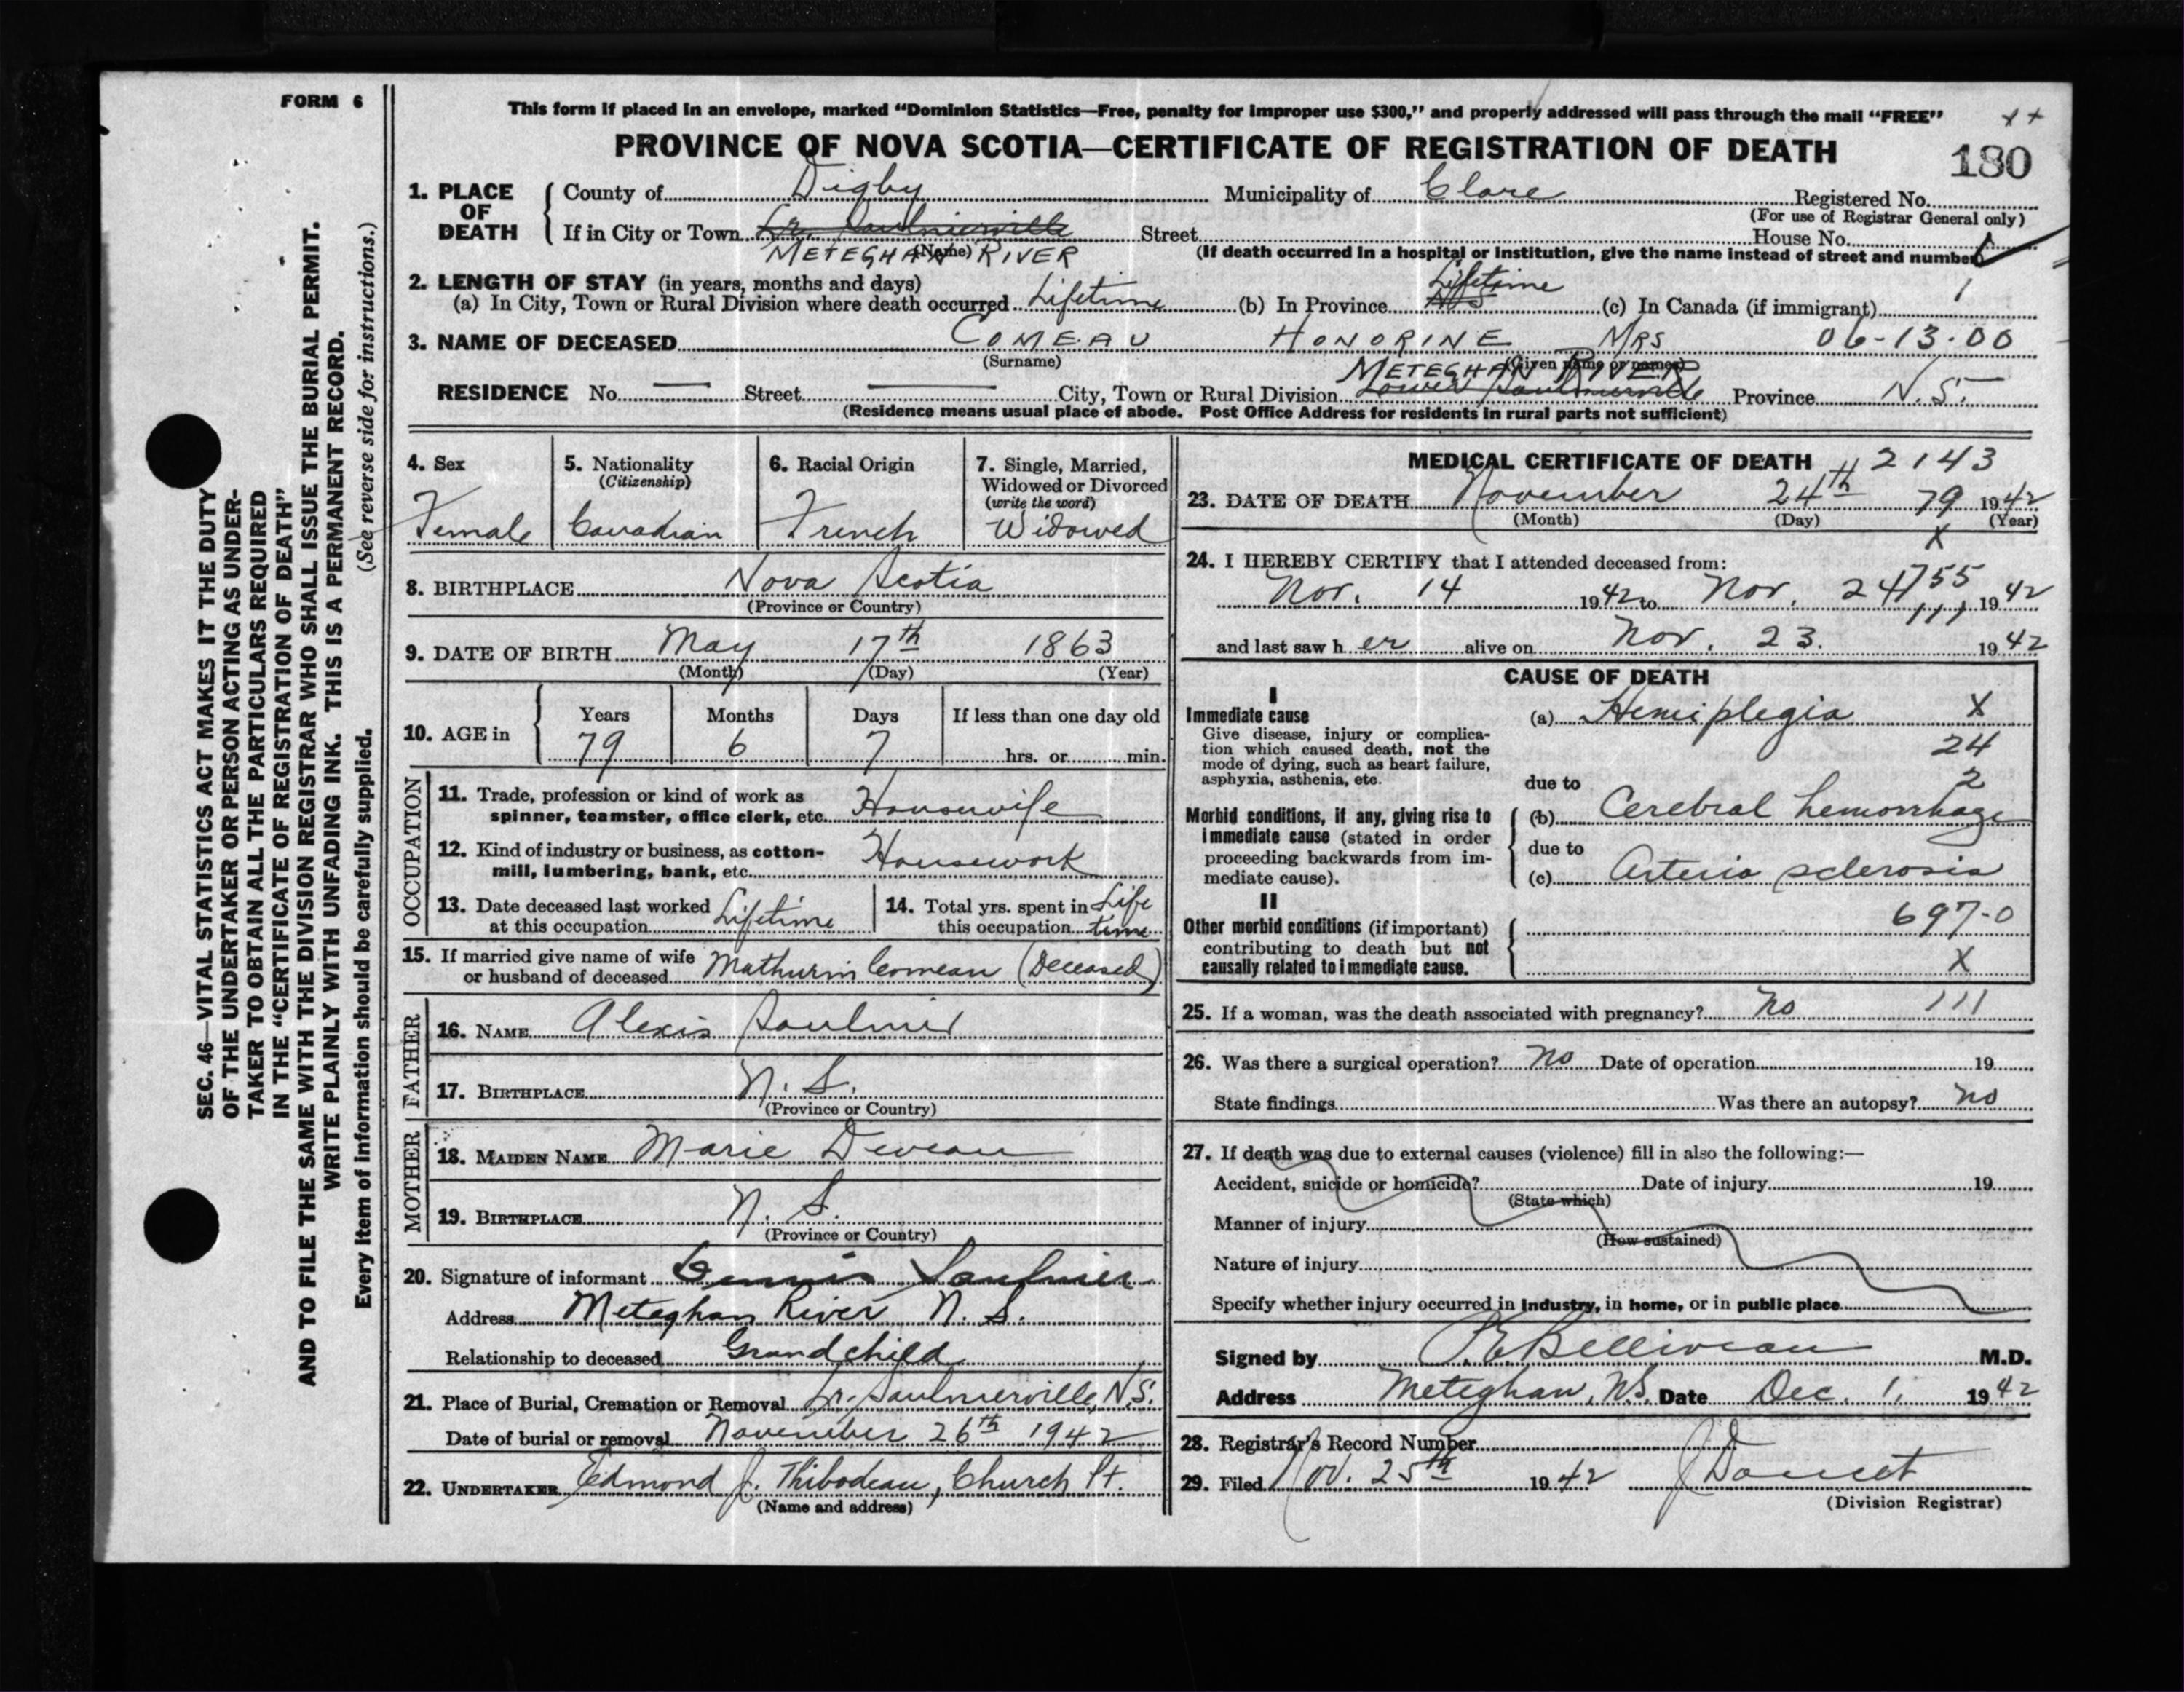 FORM 6
This form if placed in an envelope, marked “Dominion Statistics—Free, penalty for improper use $300,” and properly addressed will pass through the mail “FREE”
PROVINCE OF NOVA SCOTIA—CERTIFICATE OF REGISTRATION OF DEATH
180
1. PLACE OF DEATH
County of Digby Municipality of Clare Registered No.
(For use of Registrar General only)
If in City or Town Lr. Saulnierville Street House No.
(Name)
METEGHAN RIVER
(If death occurred in a hospital or institution, give the name instead of street and number)
2. LENGTH OF STAY (in years, months and days)
Lifetime
(a) In City, Town or Rural Division where death occurred Lifetime (b) In Province NS (c) In Canada (if immigrant) 1
3. NAME OF DECEASED COMEAU HONORINE MRS 06-13-00
(Surname) (Given name or names)
METEGHAN RIVER
RESIDENCE No. — Street — City, Town or Rural Division Lower Saulnierville Province N.S.
(Residence means usual place of abode. Post Office Address for residents in rural parts not sufficient)
4. Sex
Female
5. Nationality
(Citizenship)
Canadian
6. Racial Origin
French
7. Single, Married,
Widowed or Divorced
(write the word)
Widowed
8. BIRTHPLACE Nova Scotia
(Province or Country)
9. DATE OF BIRTH May 17th 1863
(Month) (Day) (Year)
10. AGE in
Years Months Days If less than one day old
79 6 7 hrs. or min.
OCCUPATION
11. Trade, profession or kind of work as
spinner, teamster, office clerk, etc. Housewife
12. Kind of industry or business, as cotton-
mill, lumbering, bank, etc. Housework
13. Date deceased last worked
at this occupation Lifetime
14. Total yrs. spent in Life
this occupation time
15. If married give name of wife
or husband of deceased Mathurin Comeau (Deceased)
FATHER
16. NAME Alexis Saulnier
17. BIRTHPLACE N. S.
(Province or Country)
MOTHER
18. MAIDEN NAME Marie Deveau
19. BIRTHPLACE N. S.
(Province or Country)
20. Signature of informant Dennis Saulnier
Address Meteghan River N. S.
Relationship to deceased Grandchild
21. Place of Burial, Cremation or Removal Lr. Saulnierville, N.S.
Date of burial or removal November 26th 1942
22. UNDERTAKER Edmond J. Thibodeau, Church Pt.
(Name and address)
MEDICAL CERTIFICATE OF DEATH 2143
23. DATE OF DEATH November 24th 79 1942
(Month) (Day) (Year)
X
24. I HEREBY CERTIFY that I attended deceased from:
755
Nov. 14 1942 to Nov. 24 1942
111
and last saw her alive on Nov. 23. 1942
CAUSE OF DEATH
I
Immediate cause
Give disease, injury or complica-
tion which caused death, not the
mode of dying, such as heart failure,
asphyxia, asthenia, etc.
(a) Hemiplegia X
24
2
due to
Morbid conditions, if any, giving rise to
immediate cause (stated in order
proceeding backwards from im-
mediate cause).
(b) Cerebral hemorrhage
due to
(c) Arterio sclerosis
II
Other morbid conditions (if important)
contributing to death but not
causally related to immediate cause.
697-0
X
25. If a woman, was the death associated with pregnancy? No 111
26. Was there a surgical operation? no Date of operation 19
State findings Was there an autopsy? no
27. If death was due to external causes (violence) fill in also the following:—
Accident, suicide or homicide? Date of injury 19
(State which)
Manner of injury
(How sustained)
Nature of injury
Specify whether injury occurred in industry, in home, or in public place
Signed by P.E. Belliveau M.D.
Address Meteghan, N.S. Date Dec. 1, 1942
28. Registrar's Record Number
29. Filed Nov. 25th 1942 J Doucet
(Division Registrar)
SEC. 46—VITAL STATISTICS ACT MAKES IT THE DUTY
OF THE UNDERTAKER OR PERSON ACTING AS UNDER-
TAKER TO OBTAIN ALL THE PARTICULARS REQUIRED
IN THE “CERTIFICATE OF REGISTRATION OF DEATH”
AND TO FILE THE SAME WITH THE DIVISION REGISTRAR WHO SHALL ISSUE THE BURIAL PERMIT.
WRITE PLAINLY WITH UNFADING INK. THIS IS A PERMANENT RECORD.
Every item of information should be carefully supplied. (See reverse side for instructions.)